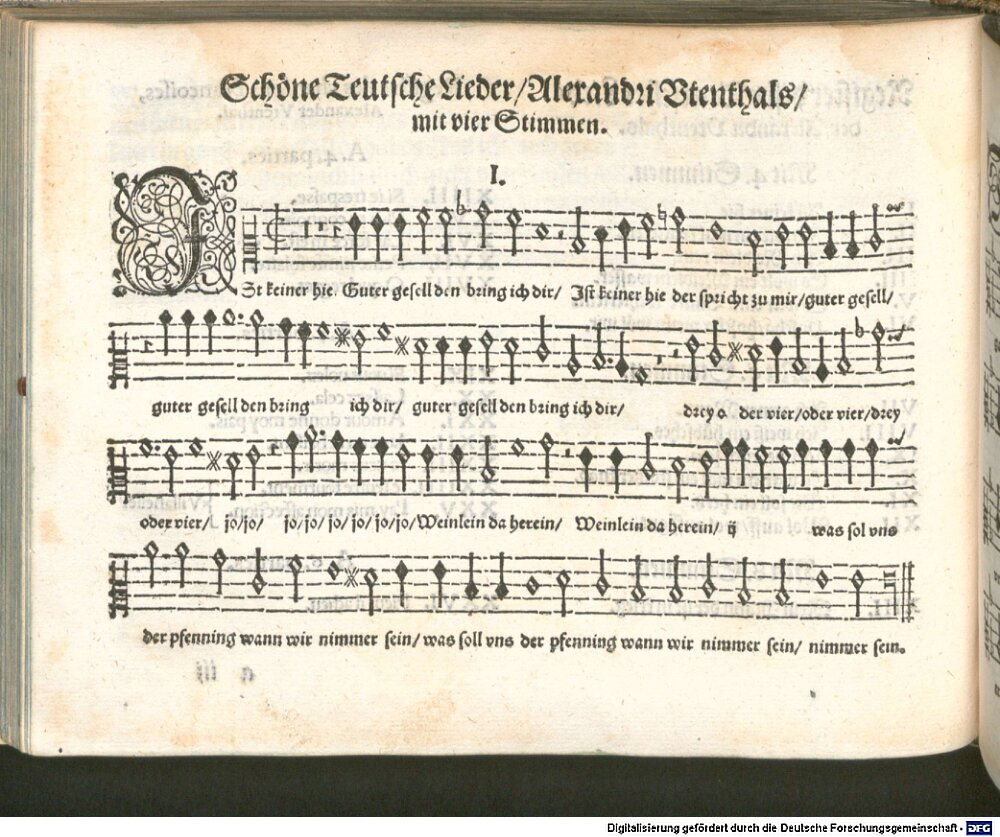 Schöne Teutsche Lieder/Alexandri Vtenthals/
mit vier Stimmen.
I.
ISt keiner hie. Guter gesell den bring ich dir/ Ist keiner hie der spricht zu mir/guter gesell/
guter gesell den bring ich dir/ guter gesell den bring ich dir/ drey o der vier/oder vier/drey
oder vier/ jo/jo/ jo/jo/jo/jo/jo/jo/Weinlein da herein/ Weinlein da herein/ ij was sol vns
der pfenning wann wir nimmer sein/was soll vns der pfenning wann wir nimmer sein/ nimmer sein.
Digitalisierung gefördert durch die Deutsche Forschungsgemeinschaft - DFG